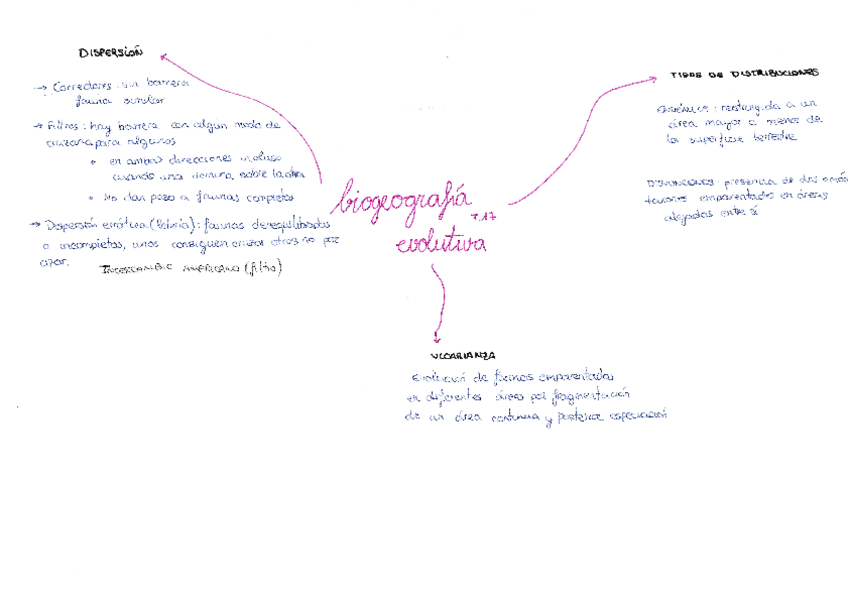 DISPERSIÓN
→ Corredores: sin barrera
fauna similar
→ Filtros: hay barrera con algun modo de
cruzarla para algunos
• en ambas direcciones incluso
cuando una domina sobre la otra
• No dan paso a faunas completas
→ Dispersión errática (lotería): faunas desequilibradas
o incompletas, unos consiguen cruzar otros no por
azar.
INTERCAMBIO AMERICANO (filtro)
biogeografía
T.17
evolutiva
TIPOS DE DISTRIBUCIONES
ENDÉMICOS: restringida a un
área mayor o menor de
la superficie terrestre
DISYUNCIONES: presencia de dos o más
taxones emparentados en áreas
alejadas entre sí
VICARIANZA
Evolución de formas emparentadas
en diferentes áreas por fragmentación
de un área continua y posterior especiación